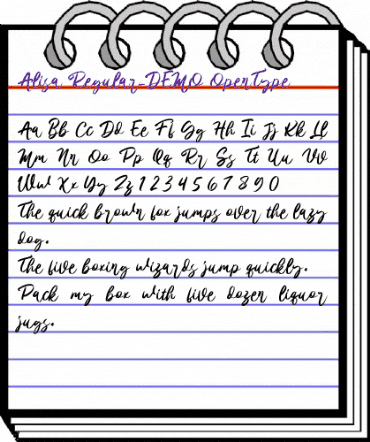 Alisa Regular-DEMO OpenType
Aa Bb Cc Dd Ee Ff Gg Hh Ii Jj Kk Ll
Mm Nn Oo Pp Qq Rr Ss Tt Uu Vv
Ww Xx Yy Zz 1 2 3 4 5 6 7 8 9 0
The quick brown fox jumps over the lazy
dog.
The five boxing wizards jump quickly.
Pack my box with five dozen liquor
jugs.